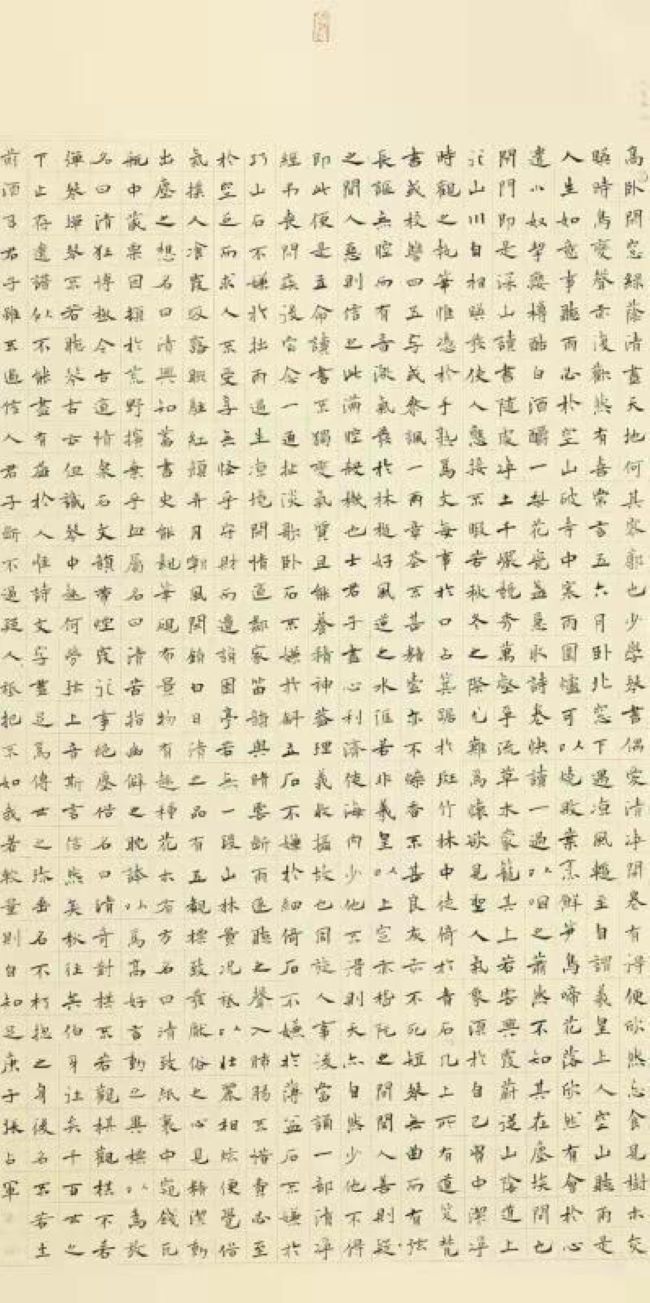 高卧閒窓綠蔭清晝天地何其寥廓也少學琴書偶愛清淨開卷有得便欣然忘食見樹木交
暎時鳥變聲亦復歡然有喜常言五六月卧北窓下遇涼風暫至自謂羲皇上人空山聽雨是
人生如意事聽雨必於空山破寺中寒雨圍爐可以燒敗葉烹鮮筍鳥啼花落欣然有會於心
遣小奴挈癭樽酤白酒釂一梨花瓷盞急取詩卷快讀一過以咽之蕭然不知其在塵埃間也
閉門即是深山讀書隨處淨土千巖競秀萬壑爭流草木蒙籠其上若雲興霞蔚從山陰道上
行山川自相暎發使人應接不暇若秋冬之際尤難為懷欲見聖人氣象須於自己胸中潔淨
時觀之執筆惟憑於手熟為文每事於口占箕踞於斑竹林中徙倚於青石几上所有道笈梵
書或校讐四五字或參諷一兩章茶不甚精壺亦不燥香不甚良灰亦不死短琴無曲而有弦
長謳無腔而有音激氣發於林樾好風逆之水涯若非羲皇以上定亦嵇阮之間聞人善則疑
之聞人惡則信之此滿腔殺機也士君子盡心利濟使海內少他不得則天亦自然少他不得
即此便是立命讀書不獨變氣質且能養精神蓋理義收攝故也周旋人事後當誦一部清淨
經弔喪問疾後宜念一通扯淡歌卧石不嫌於斜立石不嫌於細倚石不嫌於薄盆石不嫌於
巧山石不嫌於拙雨過生涼境閒情適鄰家笛韻與晴雲斷雨逐聽之聲入肺腸不惜費必至
於空乏而求人不受享無怪乎守財而遺誚園亭若無一段山林景況祗以壯麗相炫便覺俗
氣撲人飡霞吸露聊駐紅顏弄月嘲風閒銷白日清之品有五覩標致發厭俗之心見精潔動
出塵之想名曰清興知蓄書史能親筆硯布景物有趣種花木有方名曰清致紙裹中窺錢瓦
瓶中藏粟困頓於荒野擯棄乎血屬名曰清苦指幽僻之耽誇以為高好言動之異標以為放
名曰清狂博極今古適情泉石文韻帶煙霞行事絕塵俗名曰清奇對棋不若觀棋觀棋不若
彈琴彈琴不若聽琴古云但識琴中趣何勞弦上音斯言信然奕秋往矣伯牙往矣千百世之
下止存遺譜似不能盡有益於人惟詩文字畫足為傳世之珍垂名不朽總之身後名不若生
前酒耳君子雖不過信人君子斷不過疑人祗把不如我者較量則自知足庚子張占軍